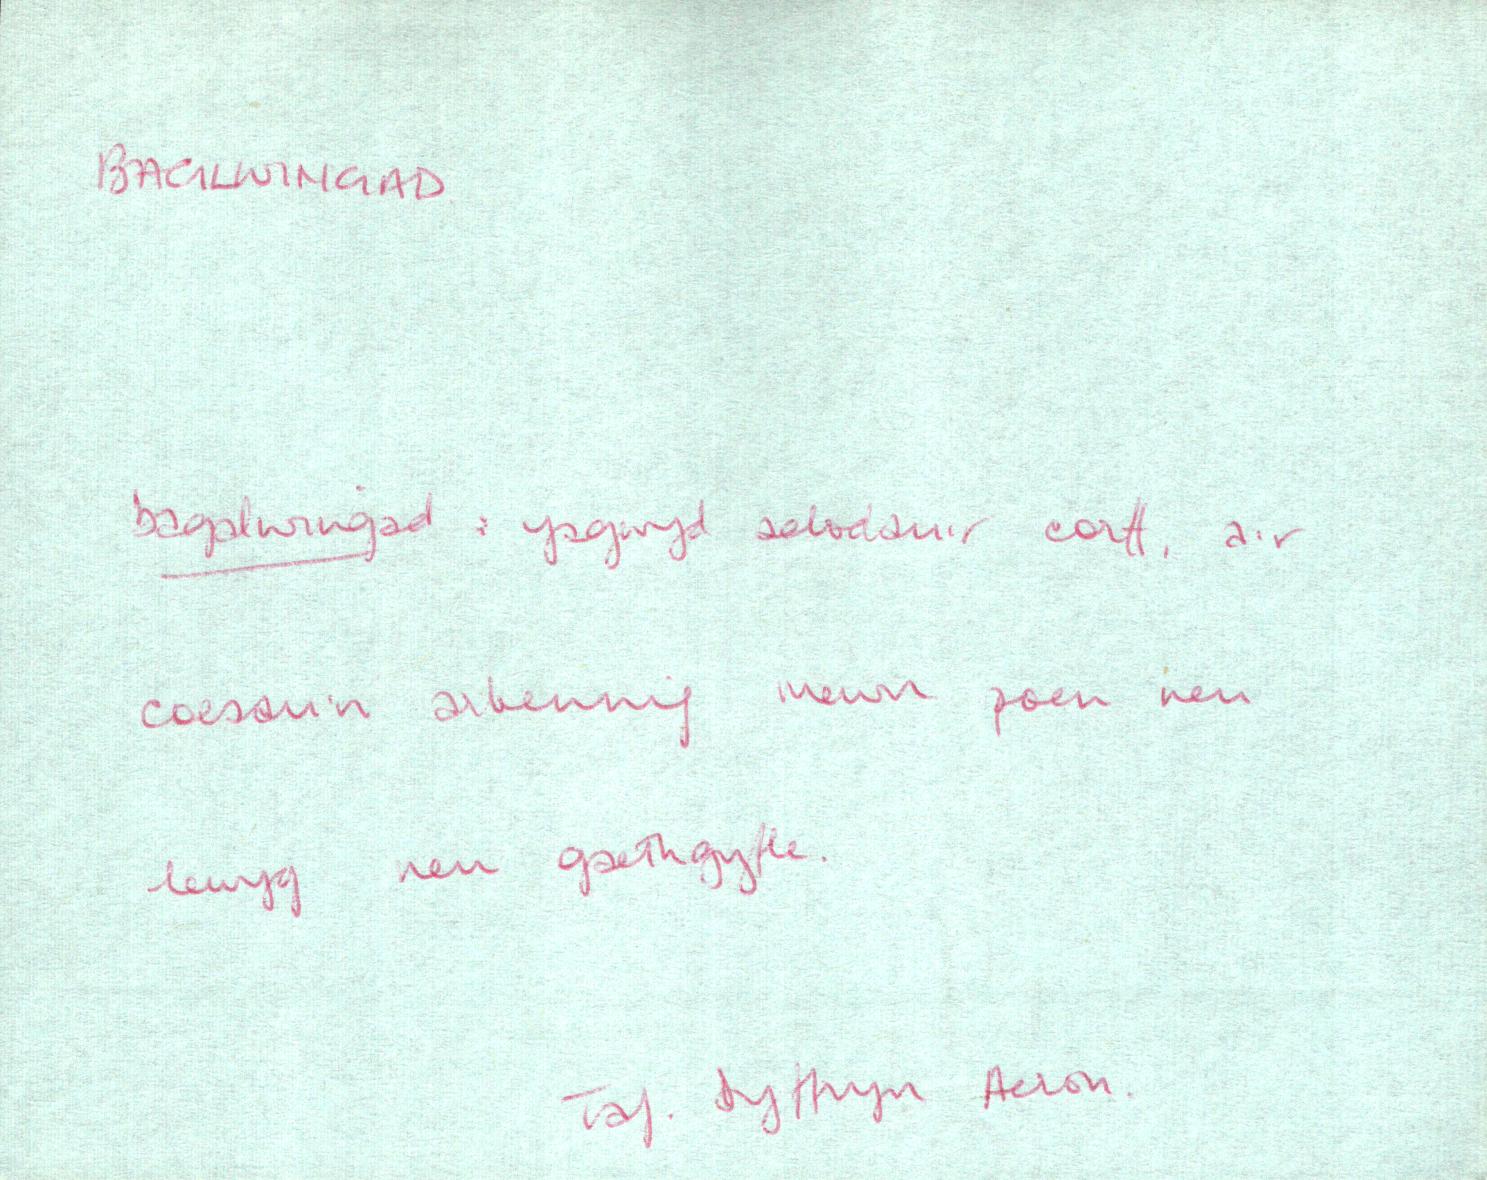 BAGLWINGAD
bagalwingad : ysgwyd aelodau'r corff, a'r
coesau'n arbennig mewn poen neu
lewyg neu gaethgyfle.
Taf. Dyffryn Aeron.